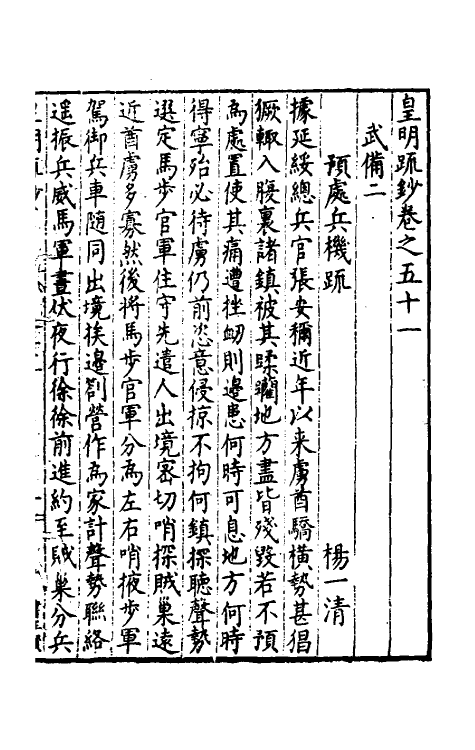 皇明疏鈔卷之五十一
武備二
預處兵機疏 楊一清
據延綏總兵官張安稱近年以来虜酋驕橫勢甚倡
獗輙入腹裏諸鎮被其蹂躪地方盡皆殘毀若不預
為處置使其痛遭挫衂則邊患何時可息地方何時
得寜殆必待虜仍前恣意侵掠不拘何鎮探聽聲勢
選定馬步官軍住守先遣人出境密切哨探賊巢遠
近酋虜多寡然後將馬步官軍分為左右哨掖步軍
駕御兵車隨同出境挨邊劄營作為家計聲勢聯絡
遥振兵威馬軍晝伏夜行徐徐前進約至賊巢分兵